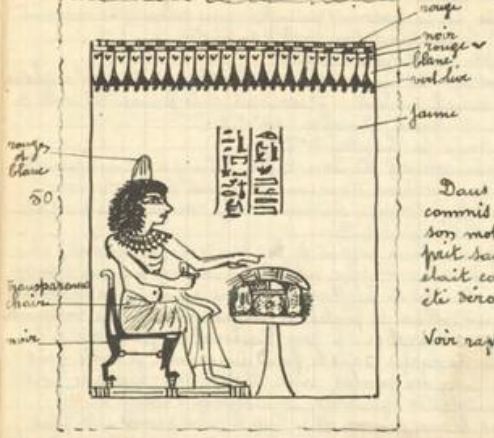 rouge
noir
rouge
blanc
jaune
rouge
et
blanc
50
transparence
chair
noir
Dans
commis
son mot
prit
était
été
Voir rap